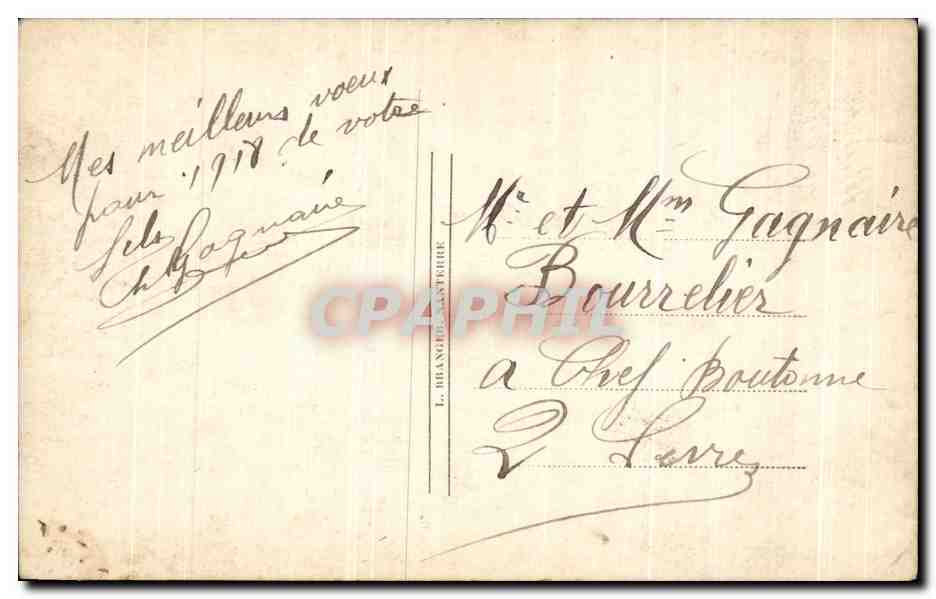 Mes meilleurs voeux
pour 1918 de votre
fils
Gagnaire
L. BRANGER, NANTERRE
CPAPHIL
Mr et Mm Gagnaire
Bourrelier
a Chef Boutonne
2 Sevres